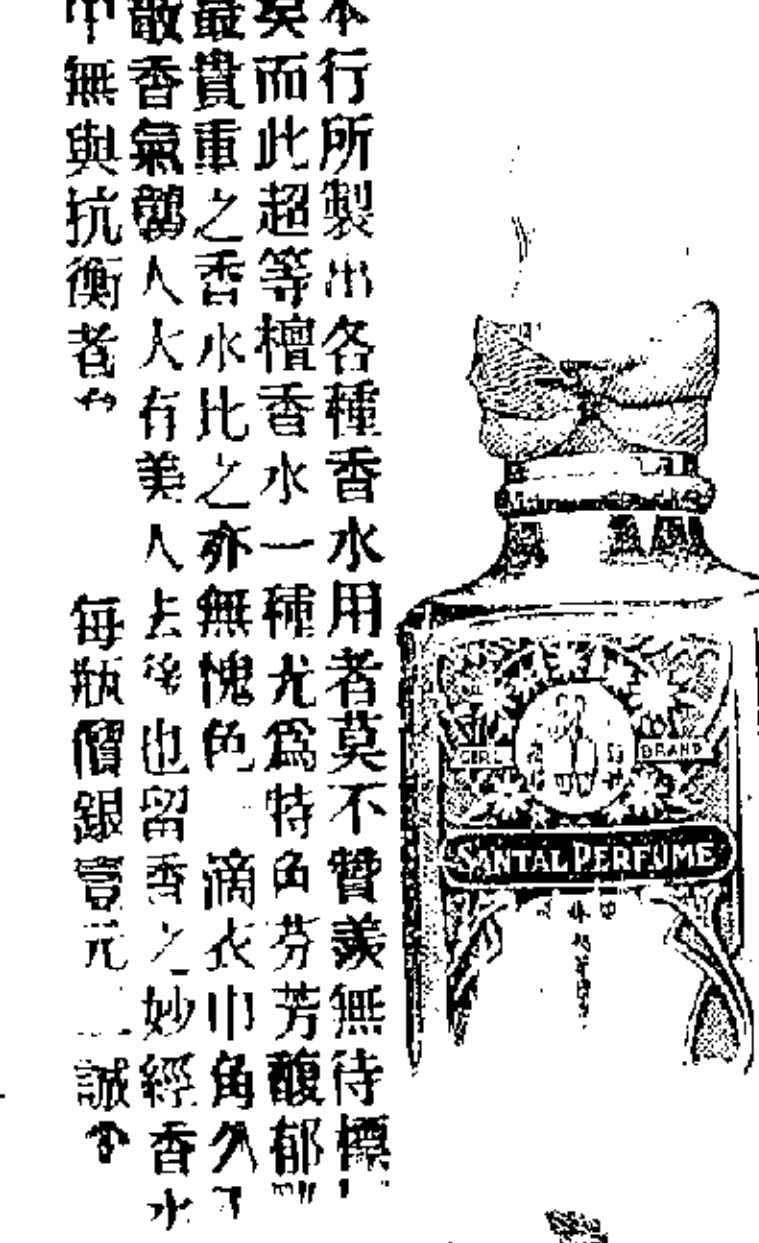 本行所製出各種香水用者莫不贊羨無待標
矣而此超等檀香水一種尤爲特色芬芳馥郁
最貴重之香水比之亦無愧色 滴衣巾角久
散香氣襲人大有美人去後也留香之妙經香水
中無與抗衡者 每瓶價銀壹元 誠
GIRL BRAND
SANTAL PERFUME